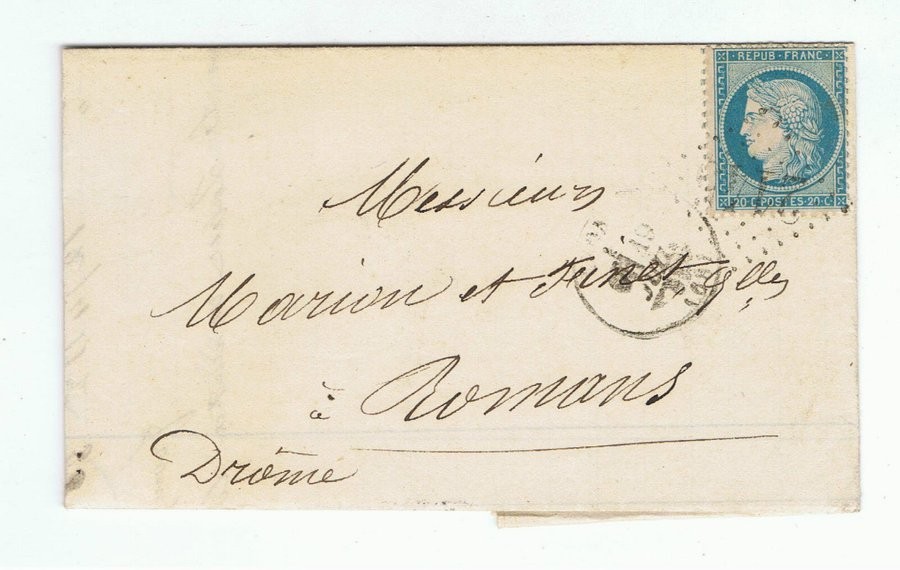 REPUB · FRANC ·
20 · C POSTES · 20 · C
Messieurs
19
Marion et
à Romans
Drôme